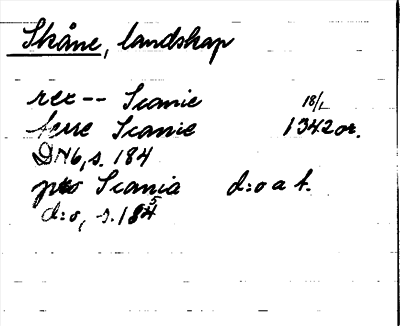 Skåne, landskap
rex -- Scanie 18/1
terre Scanie 1342 or.
DN6, s. 184
pro Scania d:o a t.
d:o, s. 185